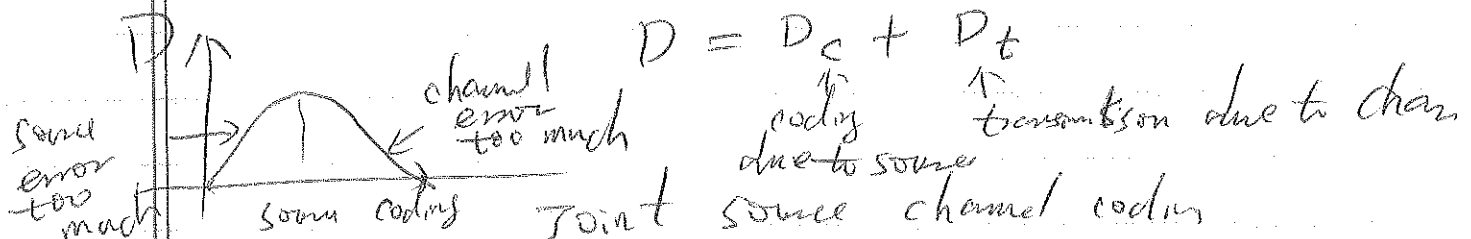 D
D = Dc + Dt
channel
error
too much
source
error
too
much
coding
due to source
transmission due to
source coding
Joint source channel coding